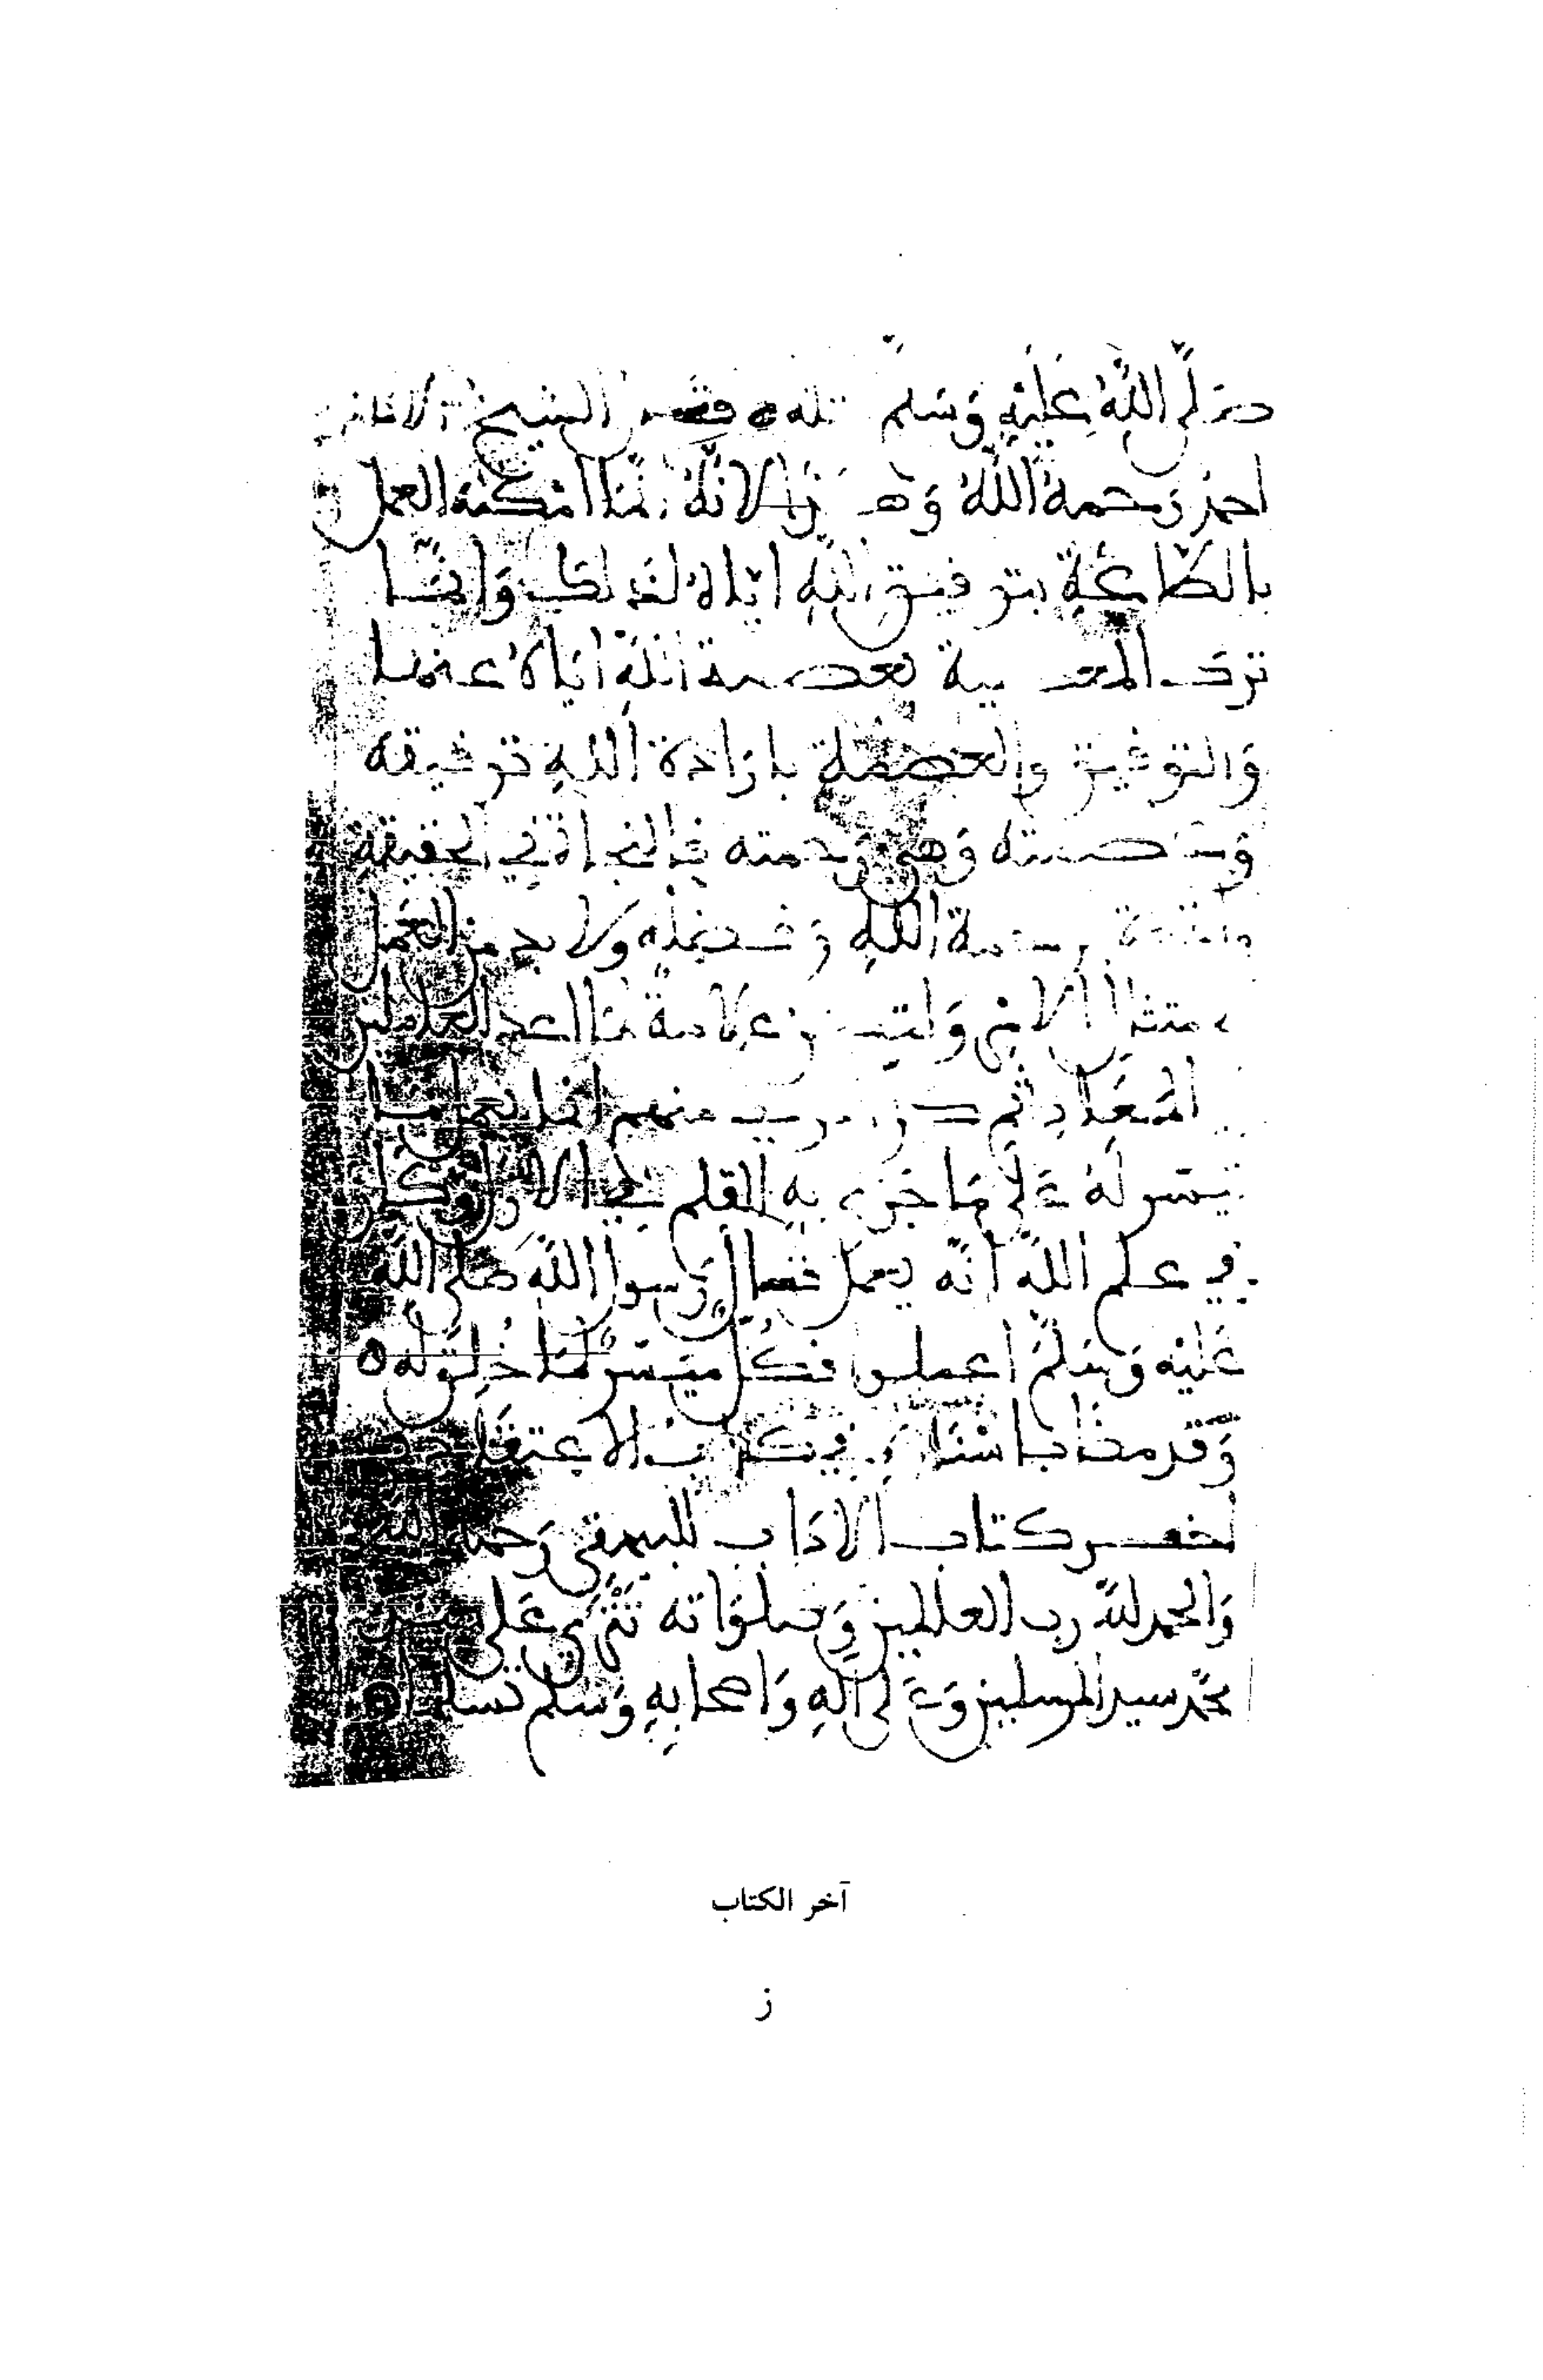 صلى الله عليه وسلم مثله قال الشيخ الامام
احمد رحمه الله وهذا لانه انما امكنه العمل
بالطاعة بتوفيق الله اياه لذلك وانما
ترك المعصية بعصمة الله اياه عنها
والتوفيق والعصمة بارادة الله توفيقه
وعصمته وهي رحمته فالنجاة في الحقيقة
واقعة برحمة الله وفضله ولا بد من العمل
علامة لما اعد للعاملين
المعاد ثم كل منهم انما يعمل بما
تيسر له على ما جرى به القلم في الاول وكان
في علم الله انه يعمل فقال رسول الله صلى الله
عليه وسلم اعملوا فكل ميسر لما خلق له ه
وقد في كتاب الاعتقاد
اخر كتاب الاداب للبيهقي رحمه الله
والحمد لله رب العالمين وصلواته تترى على
محمد سيد المرسلين وعلى اله واصحابه وسلم تسليما
آخر الكتاب
ز